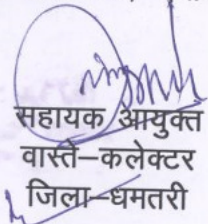 सहायक आयुक्त
वास्ते–कलेक्टर
जिला–धमतरी